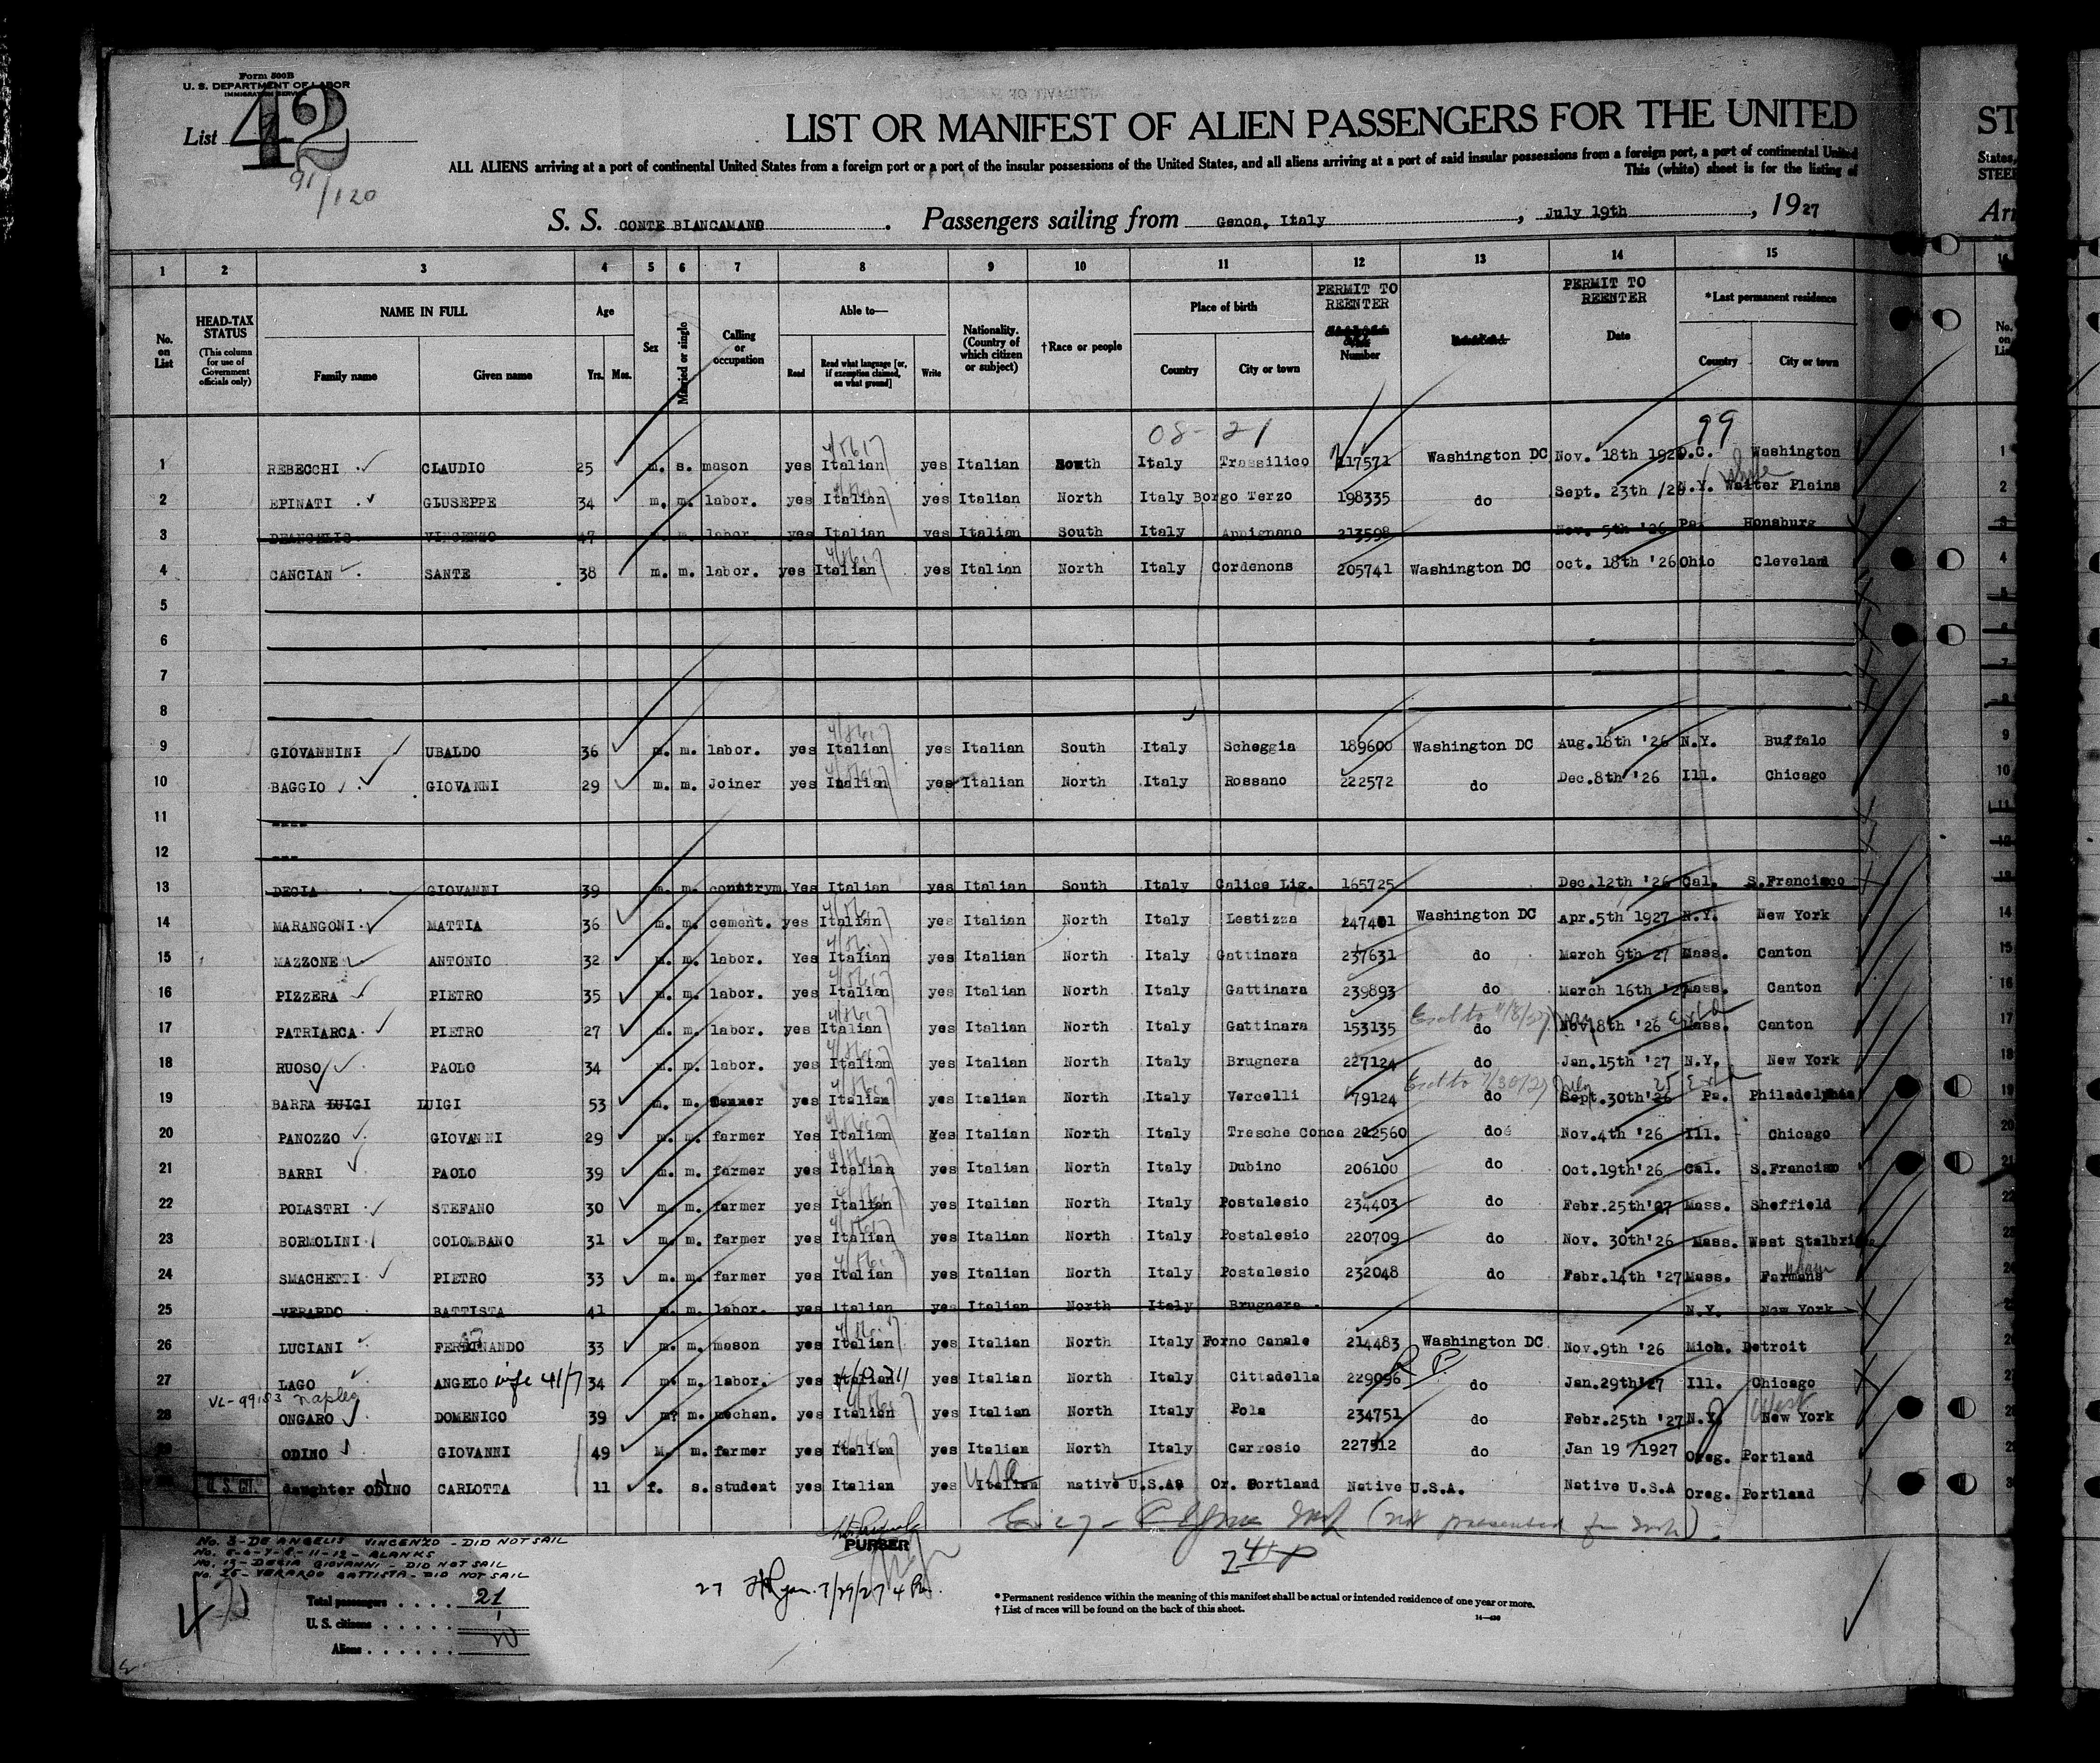 Form 500B
U. S. DEPARTMENT OF LABOR
IMMIGRATION SERVICE
List 42
91/120
LIST OR MANIFEST OF ALIEN PASSENGERS FOR THE UNITED
ALL ALIENS arriving at a port of continental United States from a foreign port or a port of the insular possessions of the United States, and all aliens arriving at a port of said insular possessions from a foreign port, a port of continental United
This (white) sheet is for the listing of
S. S. CONTE BIANCAMANO. Passengers sailing from Genoa, Italy, July 19th, 1927
1 2 3 4 5 6 7 8 9 10 11 12 13 14 15
No. on List
HEAD-TAX STATUS (This column for use of Government officials only)
NAME IN FULL Family name Given name
Age Yrs. Mos.
Sex
Married or single
Calling or occupation
Able to— Read Read what language [or, if exemption claimed, on what ground] Write
Nationality. (Country of which citizen or subject)
†Race or people
Place of birth Country City or town
PERMIT TO REENTER Number
PERMIT TO REENTER Date
*Last permanent residence Country City or town
08-21 99
1 REBECCHI CLAUDIO 25 m. s. mason yes Italian yes Italian South Italy Trassilico 117571 Washington DC Nov. 18th 192 D.C. Washington
2 EPINATI GIUSEPPE 34 m. m. labor. yes Italian yes Italian North Italy Borgo Terzo 198335 do Sept. 23th /26 N.Y. Waiter Plains
3 DEANGELIS VINCENZO 47 m. m. labor. yes Italian yes Italian South Italy Appignano 213598 Nov. 5th '26 Pa. Honsburg
4 CANCIAN SANTE 38 m. m. labor. yes Italian yes Italian North Italy Cordenons 205741 Washington DC oct. 18th '26 Ohio Cleveland
5
6
7
8
9 GIOVANNINI UBALDO 36 m. m. labor. yes Italian yes Italian South Italy Scheggia 189600 Washington DC Aug.18th '26 N.Y. Buffalo
10 BAGGIO GIOVANNI 29 m. m. Joiner yes Italian yes Italian North Italy Rossano 222572 do Dec.8th '26 Ill. Chicago
11 ----
12 ---
13 DECIA GIOVANNI 39 m. m. countrym. Yes Italian yes Italian South Italy Calice Lig. 165725 Dec.12th '26 Cal. S.Francisco
14 MARANGONI MATTIA 36 m. m. cement. yes Italian yes Italian North Italy Lestizza 247401 Washington DC Apr.5th 1927 N.Y. New York
15 MAZZONE ANTONIO 32 m. m. labor. Yes Italian yes Italian North Italy Gattinara 237631 do March 9th 27 Mass. Canton
16 PIZZERA PIETRO 35 m. m. labor. yes Italian yes Italian North Italy Gattinara 239893 do March 16th '27 Mass. Canton
17 PATRIARCA PIETRO 27 m. m. labor. yes Italian yes Italian North Italy Gattinara 153135 do Nov.8th '26 Mass. Canton
18 RUOSO PAOLO 34 m. m. labor. yes Italian yes Italian North Italy Brugnera 227124 do Jan.15th '27 N.Y. New York
19 BARRA LUIGI LUIGI 53 m. m. Tanner yes Italian yes Italian North Italy Vercelli 79124 do Sept.30th'26 Pa. Philadelphia
20 PANOZZO GIOVANNI 29 m. m. farmer Yes Italian yes Italian North Italy Tresche Conca 212560 do Nov.4th '26 Ill. Chicago
21 BARRI PAOLO 39 m. m. farmer yes Italian yes Italian North Italy Dubino 206100 do Oct.19th'26 Cal. S.Francisco
22 POLASTRI STEFANO 30 m. m. farmer yes Italian yes Italian North Italy Postalesio 234403 do Febr.25th'27 Mass. Sheffield
23 BORMOLINI COLOMBANO 31 m. m. farmer yes Italian yes Italian North Italy Postalesio 220709 do Nov. 30th'26 Mass. West Stalbri
24 SMACHETTI PIETRO 33 m. m. farmer yes Italian yes Italian North Italy Postalesio 232048 do Febr.14th '27 Mass. Farmans
25 VERARDO BATTISTA 41 m. m. labor. yes Italian yes Italian North Italy Brugnera N.Y. New York
26 LUCIANI FERDINANDO 33 m. m. mason yes Italian yes Italian North Italy Forno Canale 214483 Washington DC Nov.9th '26 Mich. Detroit
27 LAGO ANGELO wife 41/7 34 m. m. labor. yes Italian yes Italian North Italy Cittadella 229096 do Jan.29th'27 Ill. Chicago
VL-99153 naples
28 ONGARO DOMENICO 39 m. m. mechan. yes Italian yes Italian North Italy Pola 234751 do Febr.25th '27 N.Y. New York
29 ODINO GIOVANNI 49 M. m. farmer yes Italian yes Italian North Italy Carrosio 227512 do Jan 19 /1927 Oreg. Portland
30 U.S. CIT. daughter ODINO CARLOTTA 11 f. s. student yes Italian yes Italian native U.S.A. Or. Portland Native U.S.A. Native U.S.A Oreg. Portland
PURSER
No. 3-DE ANGELIS VINCENZO - DID NOT SAIL
No. 5-6-7-8-11-12 - BLANKS
No. 13-DECIA GIOVANNI - DID NOT SAIL
No. 25-VERARDO BATTISTA - DID NOT SAIL
Total passengers . . . . 21
U. S. citizens . . . . . 1
Aliens . . . . . . 20
27 7/29/27 4 Pm.
* Permanent residence within the meaning of this manifest shall be actual or intended residence of one year or more.
† List of races will be found on the back of this sheet.